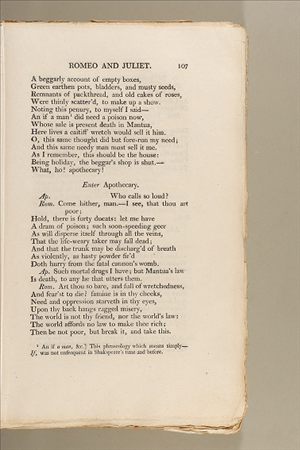 ROMEO AND JULIET. 107
A beggarly account of empty boxes,
Green earthen pots, bladders, and musty seeds,
Remnants of packthread, and old cakes of roses,
Were thinly scatter'd, to make up a show.
Noting this penury, to myself I said—
An if a man¹ did need a poison now,
Whose sale is present death in Mantua,
Here lives a caitiff wretch would sell it him.
O, this same thought did but fore-run my need;
And this same needy man must sell it me.
As I remember, this should be the house:
Being holiday, the beggar's shop is shut.—
What, ho! apothecary!
Enter Apothecary.
Ap. Who calls so loud?
Rom. Come hither, man.—I see, that thou art
poor;
Hold, there is forty ducats: let me have
A dram of poison; such soon-speeding geer
As will disperse itself through all the veins,
That the life-weary taker may fall dead;
And that the trunk may be discharg'd of breath
As violently, as hasty powder fir'd
Doth hurry from the fatal cannon's womb.
Ap. Such mortal drugs I have; but Mantua's law
Is death, to any he that utters them.
Rom. Art thou so bare, and full of wretchedness,
And fear'st to die? famine is in thy cheeks,
Need and oppression starveth in thy eyes,
Upon thy back hangs ragged misery,
The world is not thy friend, nor the world's law:
The world affords no law to make thee rich;
Then be not poor, but break it, and take this.
¹ An if a man, &c.] This phraseology which means simply—
If, was not unfrequent in Shakspeare's time and before.